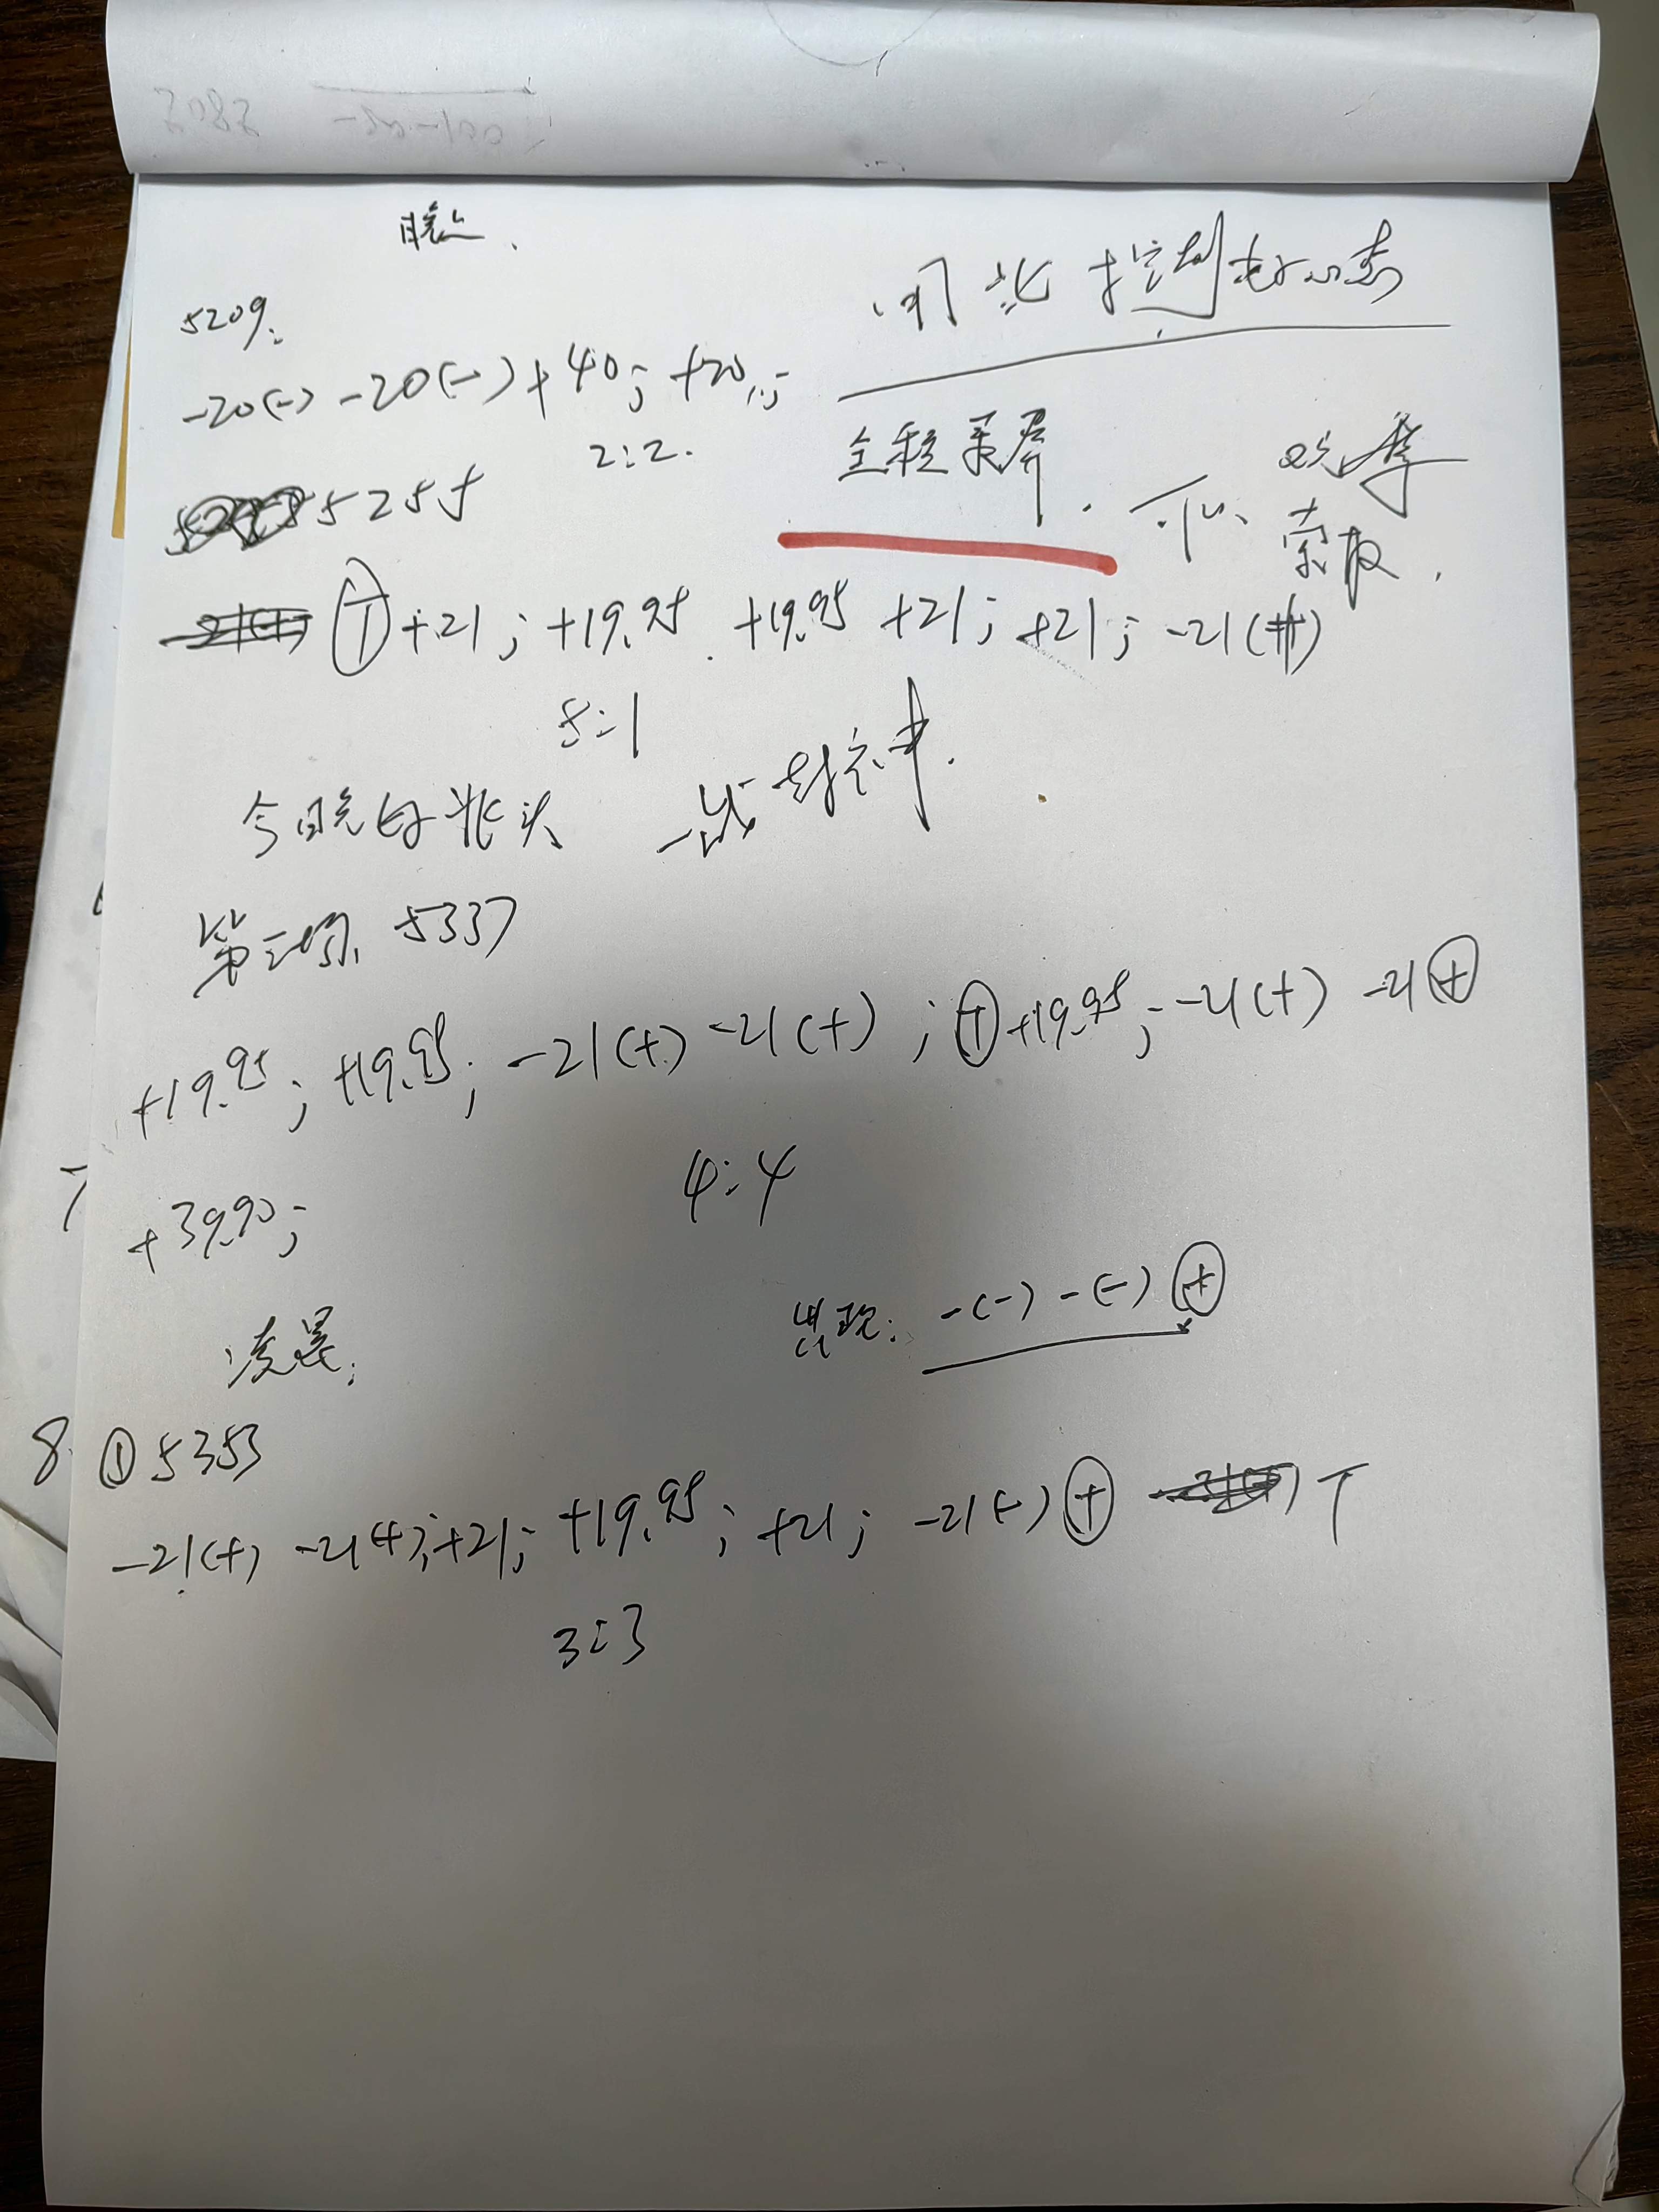 晚上.
5209.
控制好心态
-20(-) -20(-) +40; +20;
2:2.
全程录屏.
索取.
5255
+21; +19.95 +19.95 +21; +21; -21(+)
5:1
今晚好兆头 一战封神.
第三场. 5337
+19.95; +19.95; -21(+) -21(+); ⊕ +19.95; -21(+) -21 ⊕
+39.90;
4:4
出现: -(-) -(-) ⊕
凌晨:
8 ① 5353
-21(+) -21(+); +21; +19.95; +21; -21(-) ⊕ T
3:3